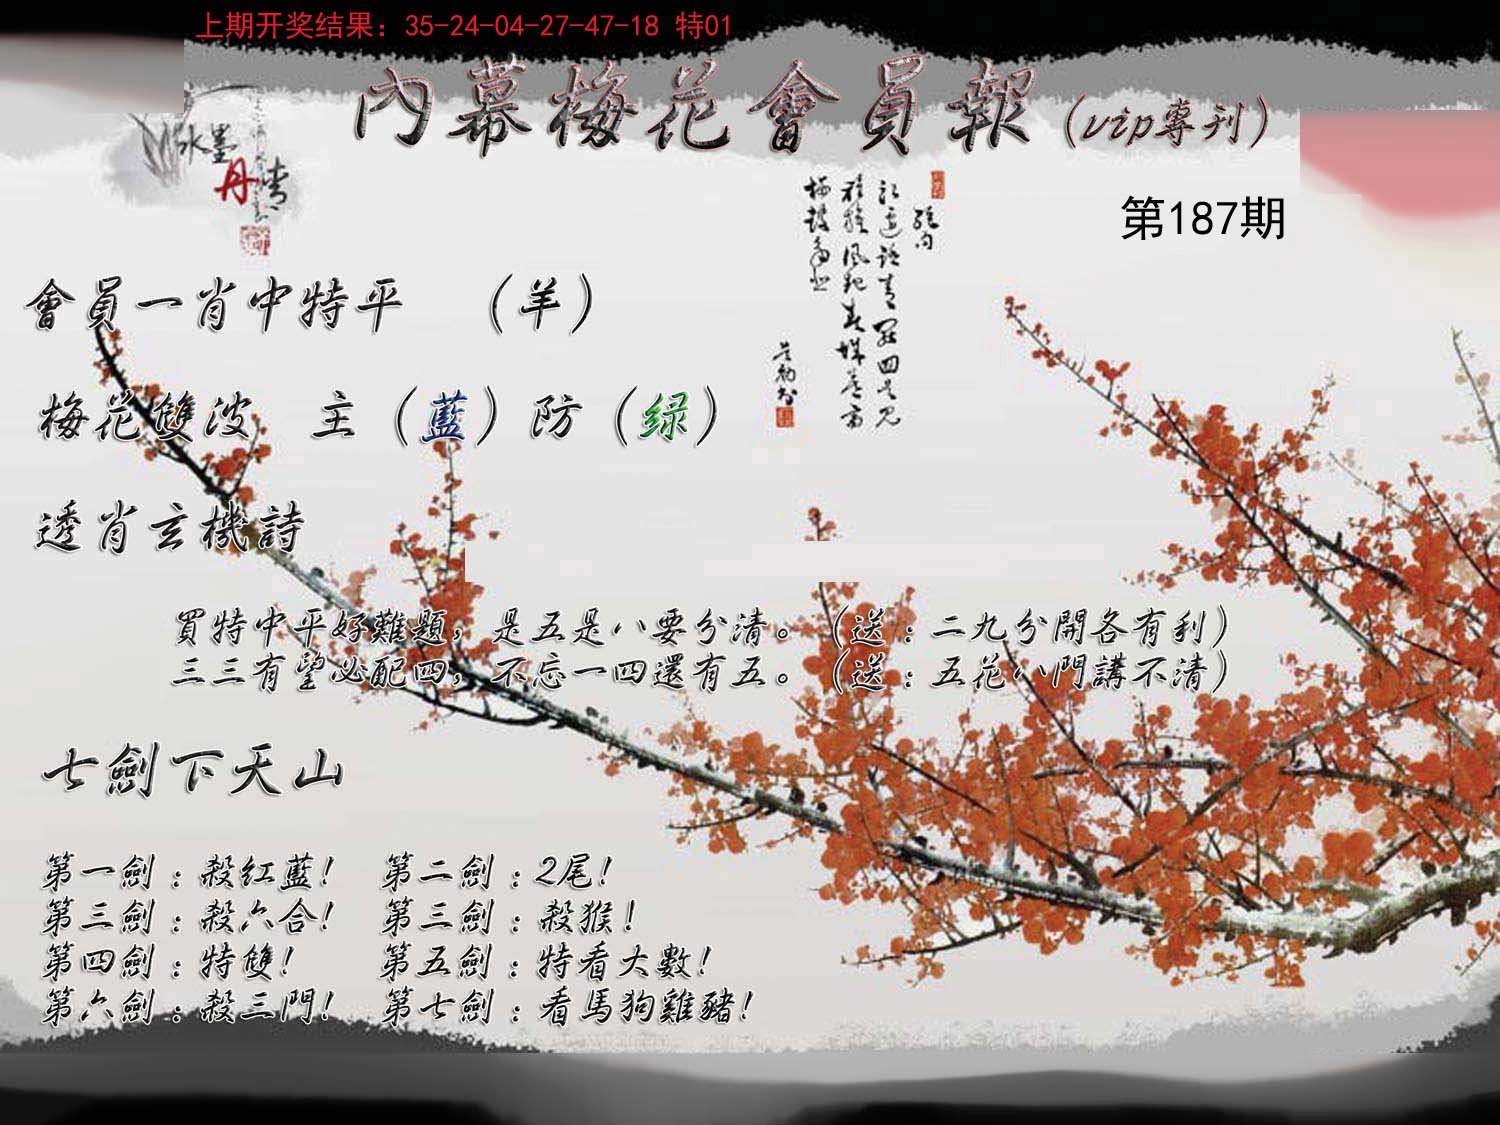 上期开奖结果：35-24-04-27-47-18 特01
內幕梅花會員報（vip專刊）
水墨
丹青
第187期
會員一肖中特平 （羊）
梅花雙波 主（藍）防（绿）
透肖玄機詩
買特中平好難題，是五是八要分清。（送：二九分開各有利）
三三有望必配四，不忘一四還有五。（送：五花八門講不清）
七劍下天山
第一劍：殺紅藍！ 第二劍：2尾！
第三劍：殺六合！ 第三劍：殺猴！
第四劍：特雙！ 第五劍：特看大數！
第六劍：殺三門！ 第七劍：看馬狗雞豬！